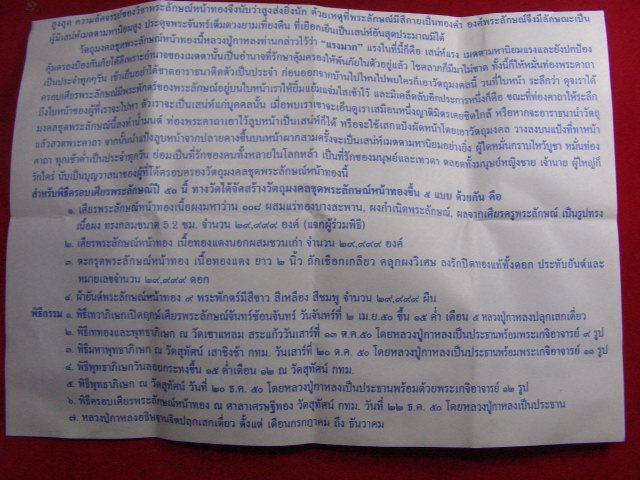 สูงสุด ความอัศจรรย์ของวิชาพระลักษณ์หน้าทองจึงนับว่าสูงส่งยิ่งนัก ด้วยเหตุที่พระลักษณ์มีสีกายเป็นทองคำ องค์พระลักษณ์จึงมีลักษณะเป็น
ผู้มีเสน่ห์เมตตามหานิยมสูง ประดุจพระจันทร์เต็มดวงยามเที่ยงคืน ที่เยือกเย็นเป็นเสน่ห์อันสุดประมาณมิได้
วัตถุมงคลชุดพระลักษณ์หน้าทองนี้หลวงปู่กาหลงท่านกล่าวไว้ว่า "แรงมาก" แรงในที่นี้ก็คือ เสน่ห์แรง เมตตามหานิยมแรงและยังปกป้อง
คุ้มครองป้องกันภัยได้ดีเพราะอำนาจของเมตตานั้นเป็นอำนาจที่รักษาคุ้มครองให้พ้นภัยในตัวอยู่แล้ว โชคลาภก็มีมาไม่ขาด ทั้งนี้ก็ให้หมั่นท่องพระคาถา
เป็นประจำทุกๆวัน เช้าเย็นอย่าได้ขาดอาราธนาติดตัวเป็นประจำ ก่อนออกจากบ้านไปไหนไปพบใครก็เอาวัตถุมงคลนี้ วนที่ใบหน้า ระลึกว่า ดุจเราได้
ครอบเศียรพระลักษณ์มีพระพักตร์ของพระลักษณ์อยู่บนใบหน้าเราให้ยิ้มแย้มแจ่มใสเข้าไว้ และมีเคล็ดลับอีกประการหนึ่งก็คือ ขณะที่ท่องคาถาให้ระลึก
ถึงใบหน้าของผู้ที่เราจะไปหา ตัวเราจะเป็นเสน่ห์แก่บุคคลนั้น เมื่อพบเราเขาจะเอ็นดูเราเสมือนหนึ่งญาติมิตรเคยชิดใกล้ หรือหากจะอาราธนานำวัตถุ
มงคลชุดพระลักษณ์นี้ลงทำน้ำมนต์ ท่องพระคาถาเอาไว้ลูบหน้าเป็นเสน่ห์ก็ได้ หรือจะใช้เสกแป้งผัดหน้าโดยเอาวัตถุมงคล วางลงบนแป้งที่ทาหน้า
แล้วสวดพระคาถา จากนั้นนำแป้งลูบหน้าจากปลายคางขึ้นบนหน้าผากสามครั้งจะเป็นเสน่ห์เมตตามหานิยมอย่างยิ่ง ผู้ใดหมั่นกราบไหว้บูชา หมั่นท่อง
คาถา ทุกเช้าค่ำเป็นประจำทุกวัน ย่อมเป็นที่รักของคนทั้งหลายในโลกหล้า เป็นที่รักของมนุษย์และเทวดา ตลอดทั้งมนุษย์หญิงชาย เจ้านาย ผู้ใหญ่ก็
รักใคร่ นับเป็นบุญวาสนาของผู้ที่ได้ครอบครองวัตถุมงคลชุดพระลักษณ์หน้าทองนี้
สำหรับพิธีครอบเศียรพระลักษณ์ปี ๕๐ นี้ ทางวัดได้จัดสร้างวัตถุมงคลชุดพระลักษณ์หน้าทองขึ้น ๕ แบบ ด้วยกัน คือ
๑. เศียรพระลักษณ์หน้าทองเนื้อผงมหาว่าน ๑๐๘ ผสมแร่ทองบางสะพาน, ผงกำเนิดพระลักษณ์, ผลจากเศียรครูพระลักษณ์ เป็นรูปทรง
เนื้อผง ทรงกลมขนาด 5.2 ซม. จำนวน ๒๙,๙๙๙ องค์ (แจกผู้ร่วมพิธี)
๒. เศียรพระลักษณ์หน้าทอง เนื้อทองแดงนอกผสมชนวนเก่า จำนวน ๒๙,๙๙๙ องค์
๓. ตะกรุดพระลักษณ์หน้าทอง เนื้อทองแดง ยาว ๒ นิ้ว ถักเชือกเกลียว คลุกผงวิเศษ ลงรักปิดทองแท้ทั้งดอก ประทับยันต์และ
หมายเลขจำนวน ๒๙,๙๙๙ ดอก
๔. ผ้ายันต์พระลักษณ์หน้าทอง ๙ พระพักตร์มีสีขาว สีเหลือง สีชมพู จำนวน ๒๙,๙๙๙ ผืน
พิธีกรรม ๑. พิธีเทวาภิเษกเปิดฤกษ์เศียรพระลักษณ์จันทร์ซ้อนจันทร์ วันจันทร์ที่ ๒ เม.ย.๕๐ ขึ้น ๑๕ ค่ำ เดือน ๕ หลวงปู่กาหลงปลุกเสกเดี่ยว
๒. พิธีเททองและพุทธาภิเษก ณ วัดเขาแหลม สระแก้ววันเสาร์ที่ ๑๓ ต.ค.๕๐ โดยหลวงปู่กาหลงเป็นประธานพร้อมพระเกจิอาจารย์ ๙ รูป
๓. พิธีมหาพุทธาภิเษก ณ วัดสุทัศน์ เสาชิงช้า กทม. วันเสาร์ที่ ๒๐ ต.ค. ๕๐ โดยหลวงปู่กาหลงเป็นประธานพร้อมพระเกจิอาจารย์ ๑๑ รูป
๔. พิธีพุทธาภิเษกวันลอยกระทงขึ้น ๑๕ ค่ำเดือน ๑๒ ณ วัดสุทัศน์ กทม.
๕. พิธีพุทธาภิเษก ณ วัดสุทัศน์ วันที่ ๒๐ ธ.ค. ๕๐ โดยหลวงปู่กาหลงเป็นประธานพร้อมด้วยพระเกจิอาจารย์ ๑๒ รูป
๖. พิธีครอบเศียรพระลักษณ์หน้าทอง ณ ศาลาเศรษฐีทอง วัดสุทัศน์ กทม. วันที่ ๒๒ ธ.ค. ๕๐ โดยหลวงปู่กาหลงเป็นประธาน
๗. หลวงปู่กาหลงอธิษฐานจิตปลุกเสกเดี่ยว ตั้งแต่ เดือนกรกฎาคม ถึง ธันวาคม